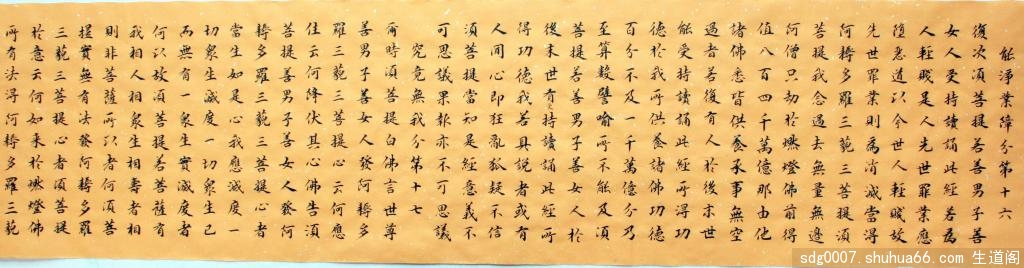 能淨業障分第十六
復次須菩提善男子善
女人受持讀誦此經若為
人輕賤是人先世罪業應
墮惡道以今世人輕賤故
先世罪業則為消滅當得
阿耨多羅三藐三菩提須
菩提我念過去無量無邊
阿僧只劫於燃燈佛前得
值八百四千萬億那由他
諸佛悉皆供養承事無空
過者若復有人於後末世
能受持讀誦此經所得功
德於我所供養諸佛功德
百分不及一千萬億分乃
至算數譬喻所不能及須
菩提善男子善女人於
後末世有受持讀誦此經所
得功德我若具說者或有
人聞心即狂亂狐疑不信
須菩提當知是經意義不
可思議果報亦不可思議
究竟無我分第十七
爾時須菩提白佛言世尊
善男子善女人發阿耨多
羅三藐三菩提心云何應
住云何降伏其心佛告須
菩提善男子善女人發阿
耨多羅三藐三菩提心者
當生如是心我應滅度一
切眾生滅度一切眾生已
而無有一眾生實滅度者
何以故須菩提若菩薩有
我相人相眾生相壽者相
則非菩薩所以者何須菩
提實無有法發阿耨多羅
三藐三菩提心者須菩提
於意云何如來於燃燈佛
所有法得阿耨多羅三藐
sdg0007.shuhua66.com 生道阁